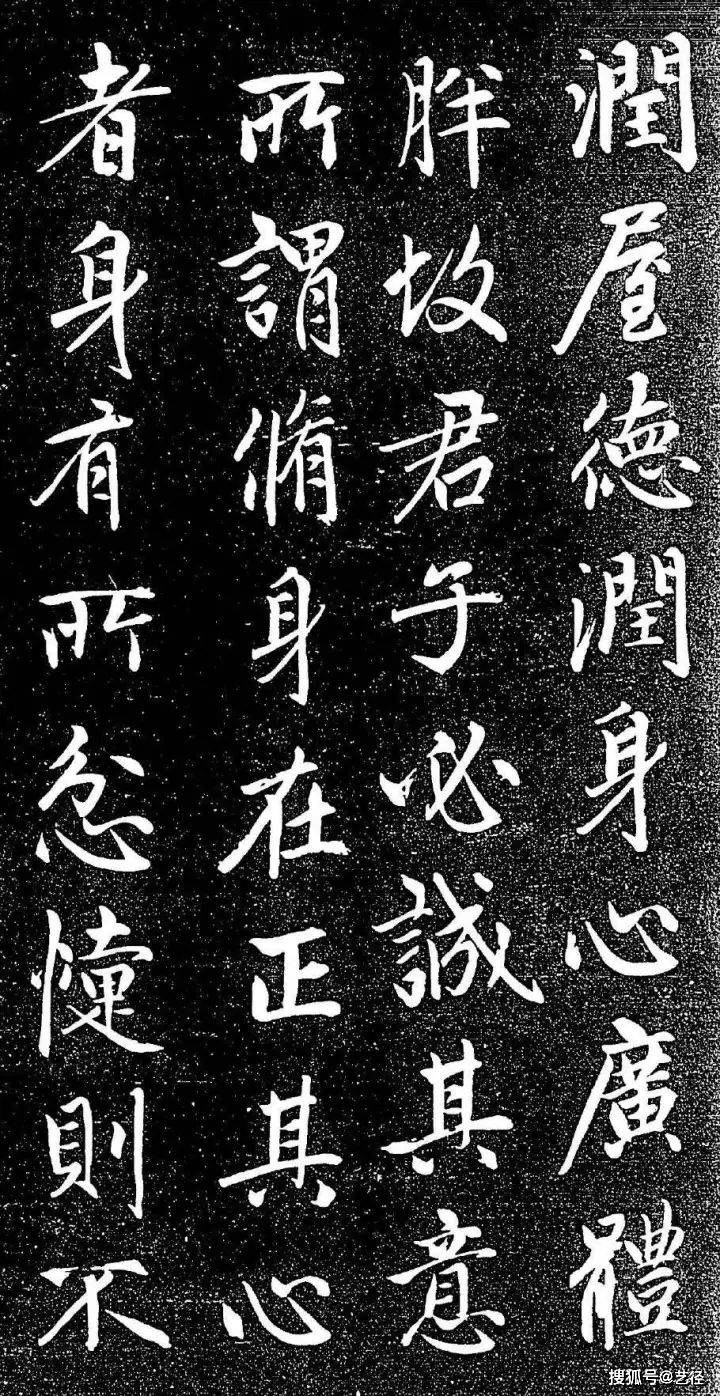 潤屋德潤身心廣體
胖故君子必誠其意
所謂脩身在正其心
者身有所忿懥則不
搜狐号@艺径